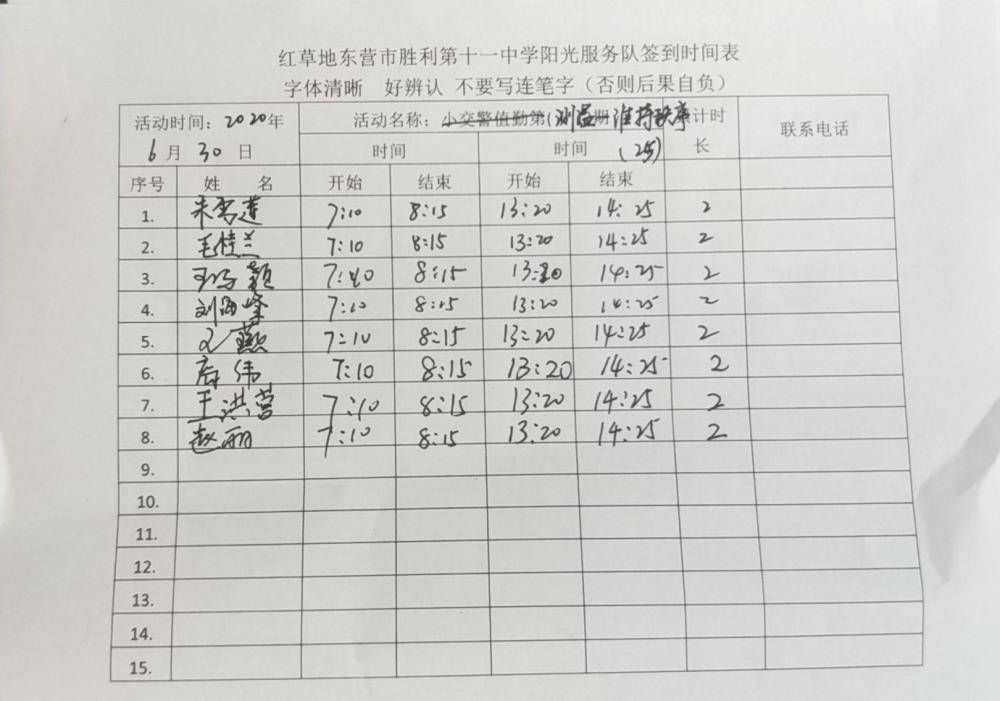 红草地东营市胜利第十一中学阳光服务队签到时间表
字体清晰 好辨认 不要写连笔字（否则后果自负）
活动时间：2020年 活动名称：小交警值勤第(测温期 维持秩序 计时 联系电话
6月30日 时间 时间 (2场) 长
序号 姓 名 开始 结束 开始 结束
1. 朱雪莲 7:10 8:15 13:20 14:25 2
2. 毛桂兰 7:10 8:15 13:20 14:25 2
3. 7:10 8:15 13:20 14:25 2
4. 刘海峰 7:10 8:15 13:20 14:25 2
5. 燕 7:10 8:15 13:20 14:25 2
6. 伟 7:10 8:15 13:20 14:25 2
7. 王洪营 7:10 8:15 13:20 14:25 2
8. 赵丽 7:10 8:15 13:20 14:25 2
9.
10.
11.
12.
13.
14.
15.